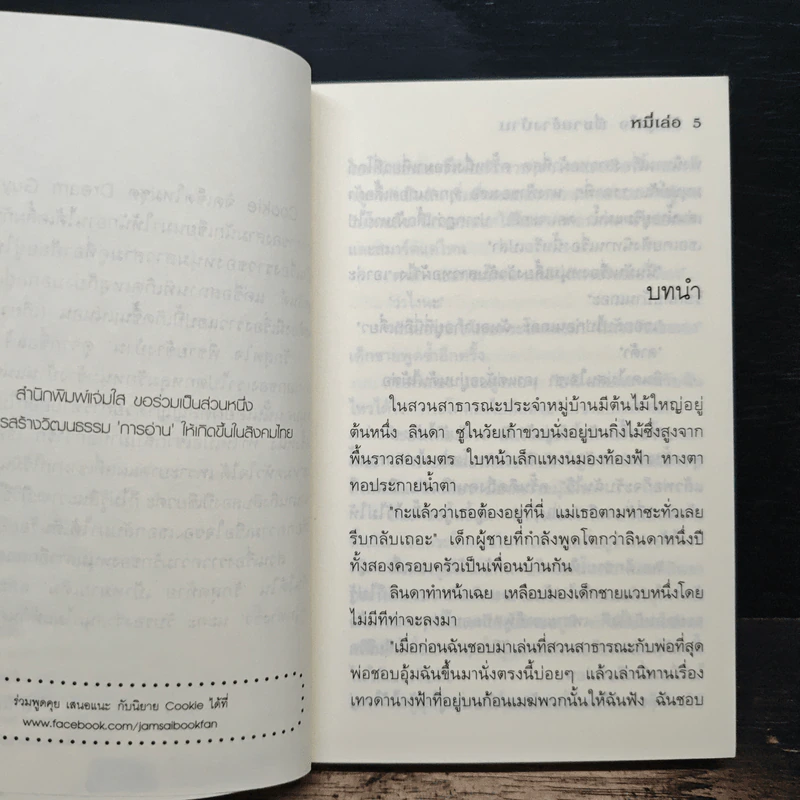 สำนักพิมพ์แจ่มใส ขอร่วมเป็นส่วนหนึ่ง
รสร้างวัฒนธรรม 'การอ่าน' ให้เกิดขึ้นในสังคมไทย
ร่วมพูดคุย เสนอแนะ กับนิยาย Cookie ได้ที่
www.facebook.com/jamsaibookfan
หมี่เล่อ 5
บทนำ
ในสวนสาธารณะประจำหมู่บ้านมีต้นไม้ใหญ่อยู่
ต้นหนึ่ง ลินดา ซูในวัยเก้าขวบนั่งอยู่บนกิ่งไม้ซึ่งสูงจาก
พื้นราวสองเมตร ใบหน้าเล็กแหงนมองท้องฟ้า หางตา
ทอประกายน้ำตา
"กะแล้วว่าเธอต้องอยู่ที่นี่ แม่เธอตามหาซะทั่วเลย
รีบกลับเถอะ" เด็กผู้ชายที่กำลังพูดโตกว่าลินดาหนึ่งปี
ทั้งสองครอบครัวเป็นเพื่อนบ้านกัน
ลินดาทำหน้าเฉย เหลือบมองเด็กชายแวบหนึ่งโดย
ไม่มีทีท่าจะลงมา
"เมื่อก่อนฉันชอบมาเล่นที่สวนสาธารณะกับพ่อที่สุด
พ่อชอบอุ้มฉันขึ้นมานั่งตรงนี้บ่อยๆ แล้วเล่านิทานเรื่อง
เทวดานางฟ้าที่อยู่บนก้อนเมฆพวกนั้นให้ฉันฟัง ฉันชอบ